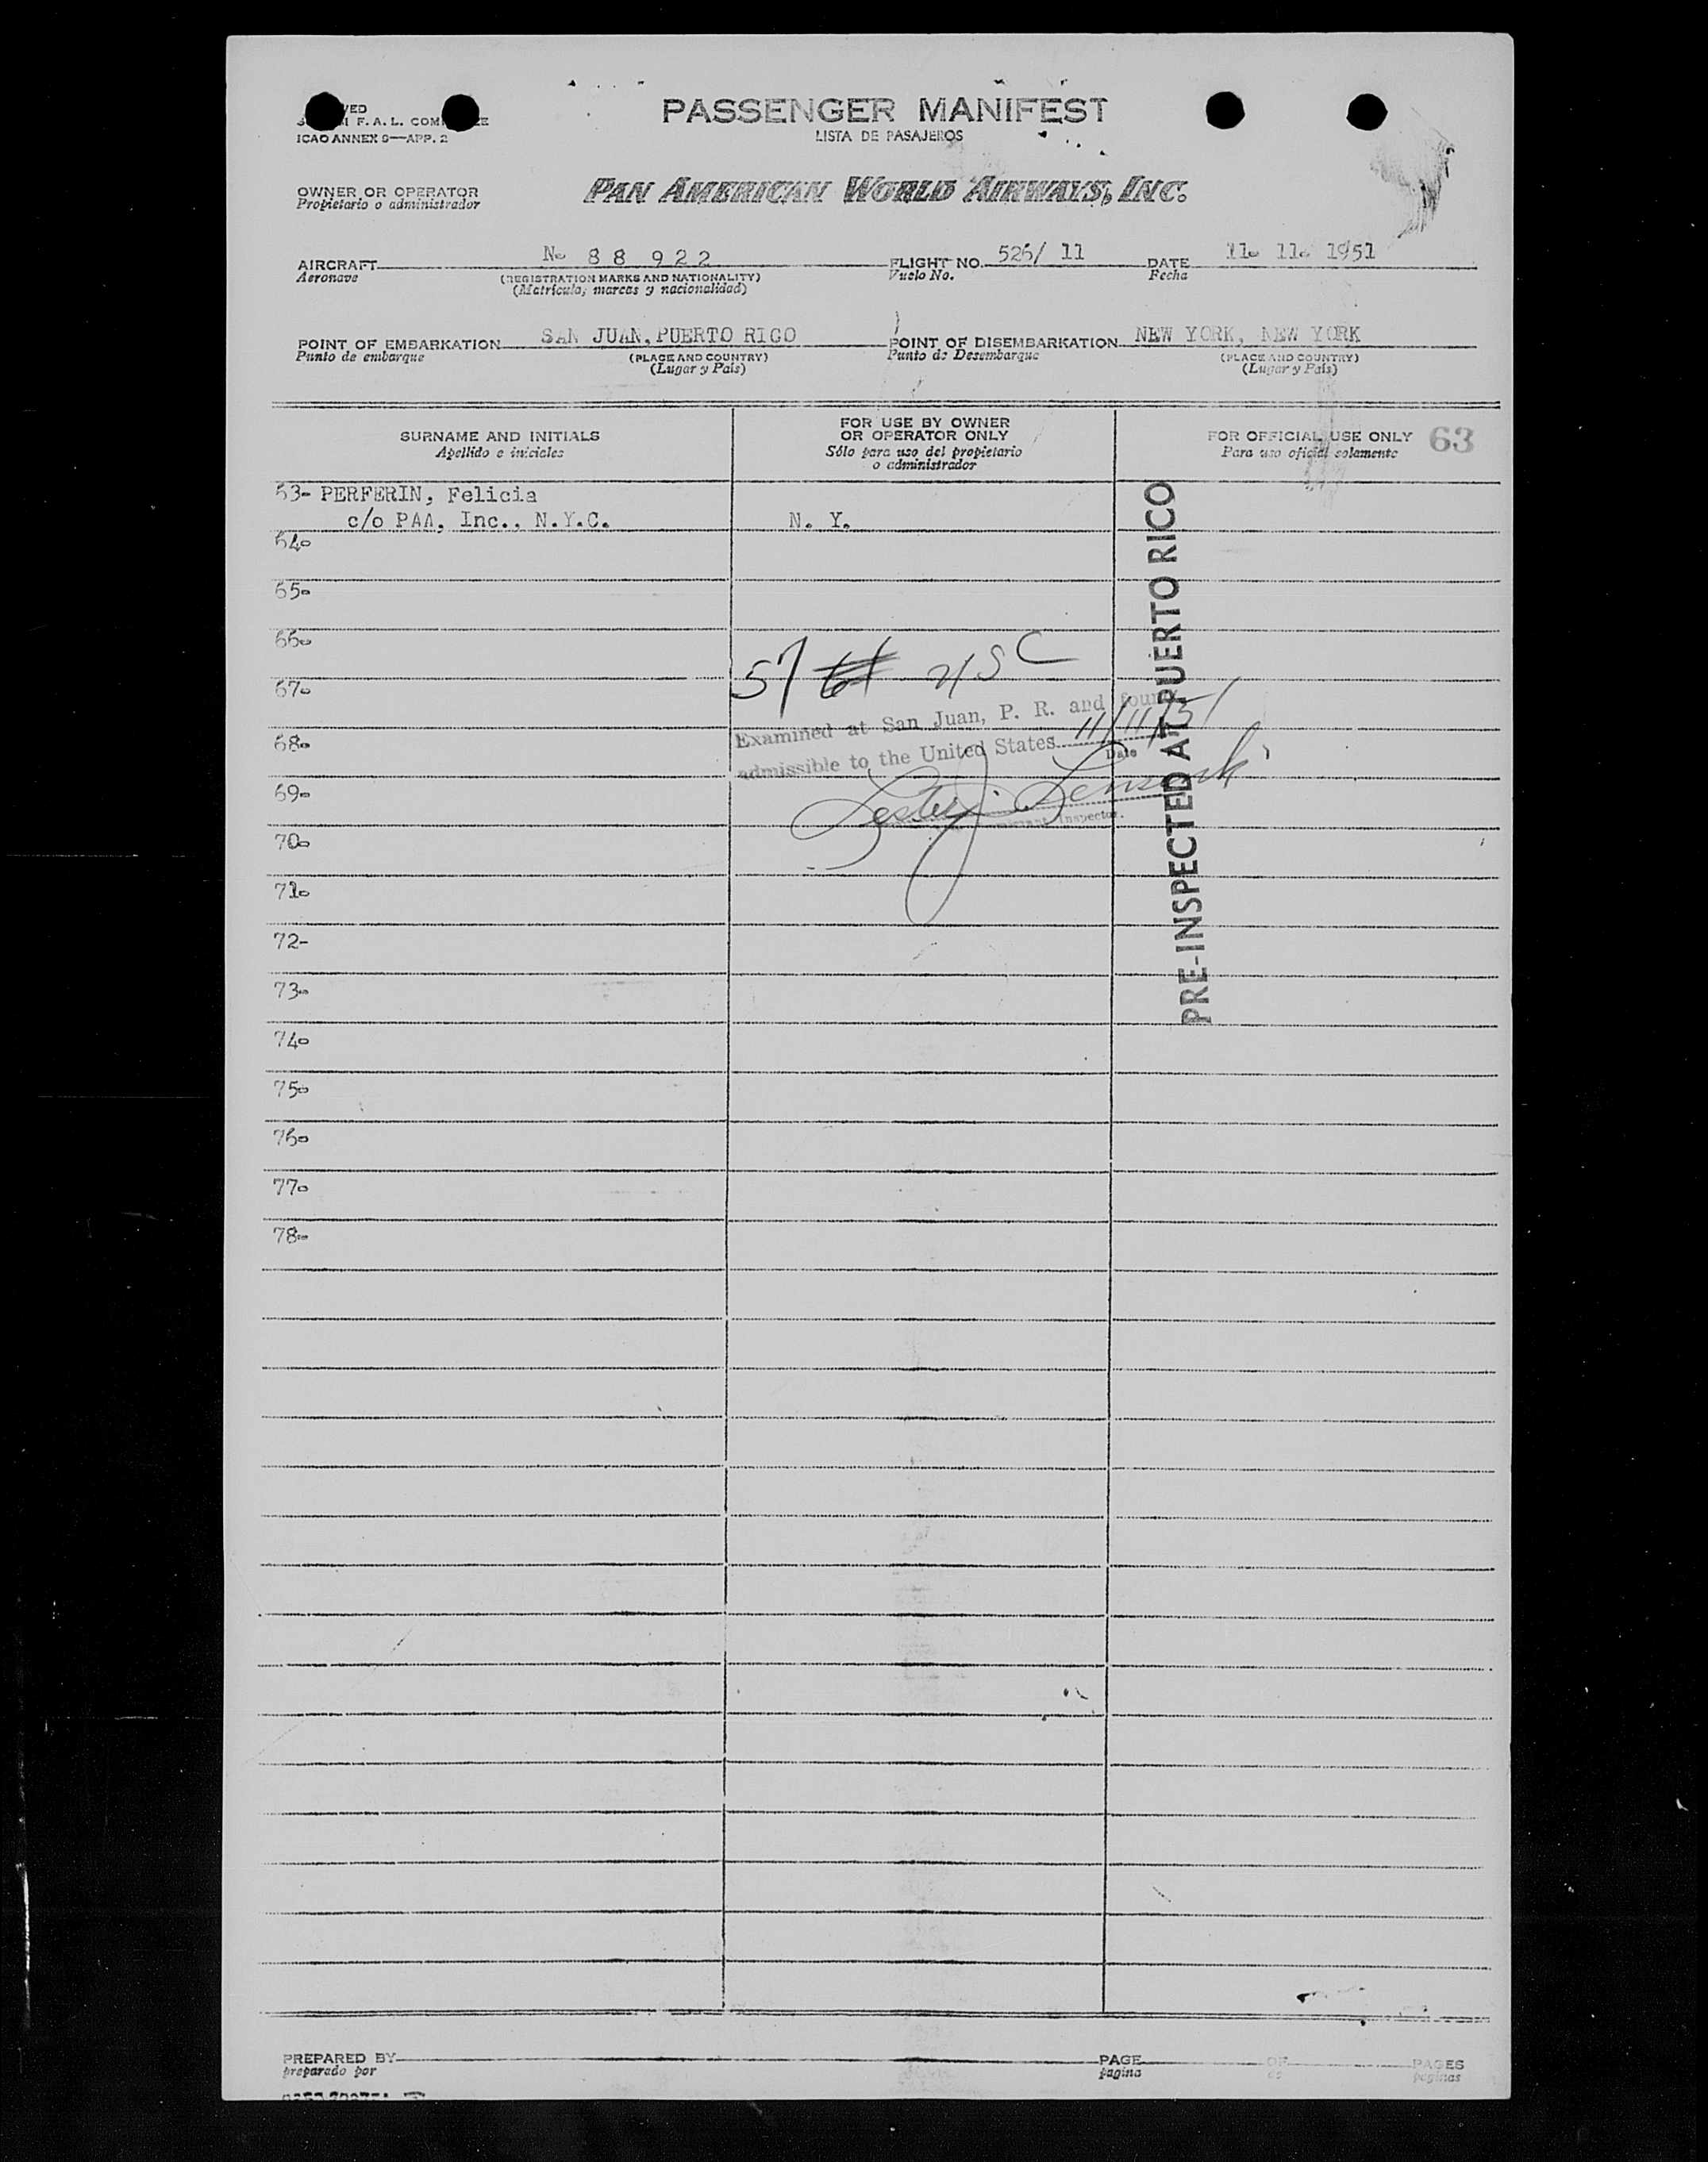 PASSENGER MANIFEST
LISTA DE PASAJEROS
F. A. L.
ICAO ANNEX 9—APP. 2
OWNER OR OPERATOR
Propietario o administrador
PAN AMERICAN WORLD AIRWAYS, INC.
AIRCRAFT N- 88 922 FLIGHT NO. 526/ 11 DATE 11- 11- 1951
Aeronave (REGISTRATION MARKS AND NATIONALITY) Vuelo No. Fecha
(Matricula, marcas y nacionalidad)
POINT OF EMBARKATION SAN JUAN, PUERTO RICO POINT OF DISEMBARKATION NEW YORK, NEW YORK
Punto de embarque (PLACE AND COUNTRY) Punto de Desembarque (PLACE AND COUNTRY)
(Lugar y País) (Lugar y País)
SURNAME AND INITIALS
Apellido e iniciales
FOR USE BY OWNER
OR OPERATOR ONLY
Sólo para uso del propietario
o administrador
FOR OFFICIAL USE ONLY 63
Para uso oficial solamente
63- PERFERIN, Felicia
c/o PAA, Inc., N.Y.C. N. Y.
64-
65-
66-
57 61 USC
67-
Examined at San Juan, P. R. and found
68-
admissible to the United States 11/11/51
Date
69-
Inspector.
70-
71-
72-
73-
74-
75-
76-
77-
78-
PRE-INSPECTED AT PUERTO RICO
PREPARED BY PAGE OF PAGES
preparado por página de páginas